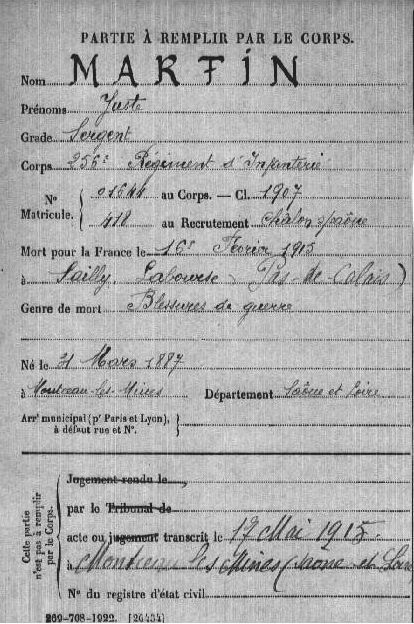 PARTIE À REMPLIR PAR LE CORPS.
Nom MARTIN
Prénoms Juste
Grade Sergent
Corps 256e Régiment d'Infanterie
Nº Matricule. { 01644 au Corps. — Cl. 1907
418 au Recrutement Châlon s/saône
Mort pour la France le 16 Février 1915
à Sailly Labourse (Pas de Calais)
Genre de mort Blessures de guerre
Né le 31 Mars 1887
à Montceau-les-Mines Département Saône et Loire
Arrt municipal (pr Paris et Lyon), à défaut rue et Nº. }
Cette partie n'est pas à remplir par le Corps.
Jugement rendu le
par le Tribunal de
acte ou jugement transcrit le 17 Mai 1915
à Montceau les Mines (Saône et Loire
Nº du registre d'état civil
269-708-1922. [26434]